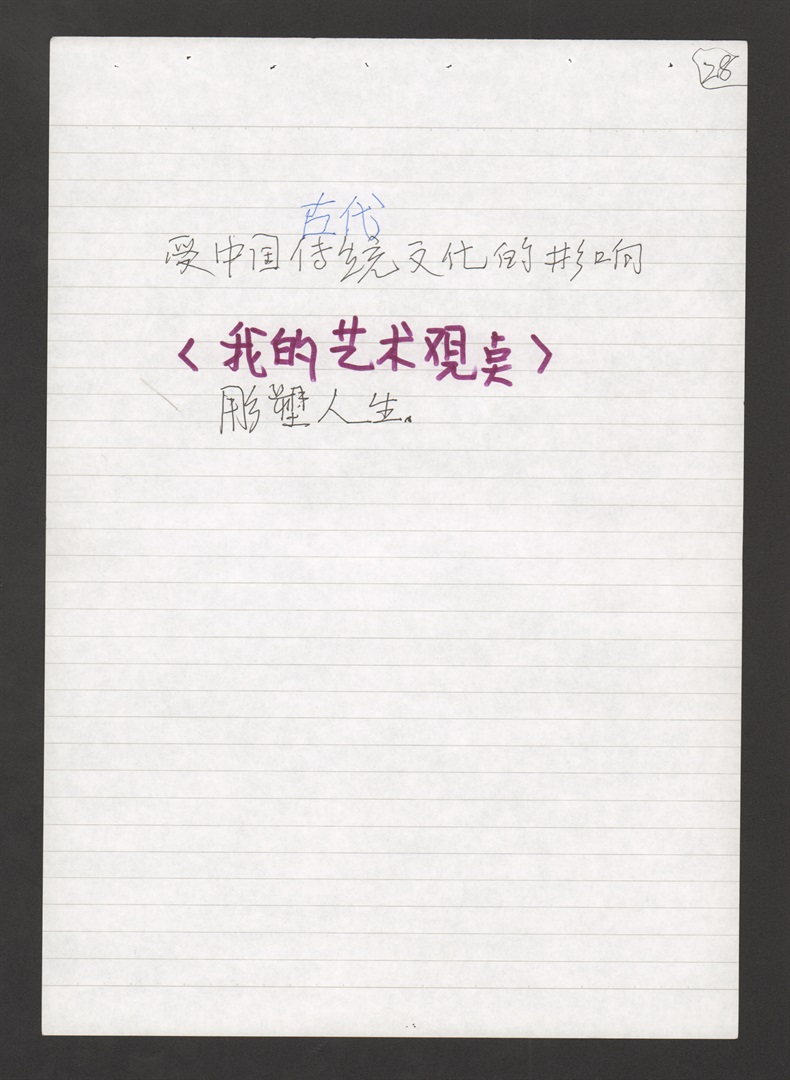 28
古代
受中国传统文化的影响
<我的艺术观点>
彫塑人生.